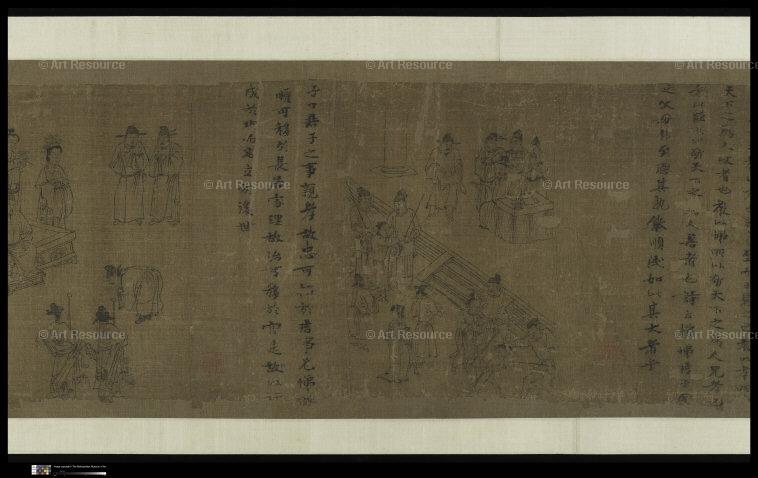 至而日見之
天下之為人父者也教以悌所以敬天下之為人兄者也
教以臣所以敬天下之為人君者也詩云愷悌君子民
之父母非至德其孰能順民如此其大者乎
子曰君子之事親孝故忠可移於君事兄悌故
順可移於長居家理故治可移於官是故行
成於內而名立於後世
© Art Resource
© Art Resource
© Art Resource
© Art Resource
© Art Resource
© Art Resource
© Art Resource
© Art Resource
Image copyright © The Metropolitan Museum of Art